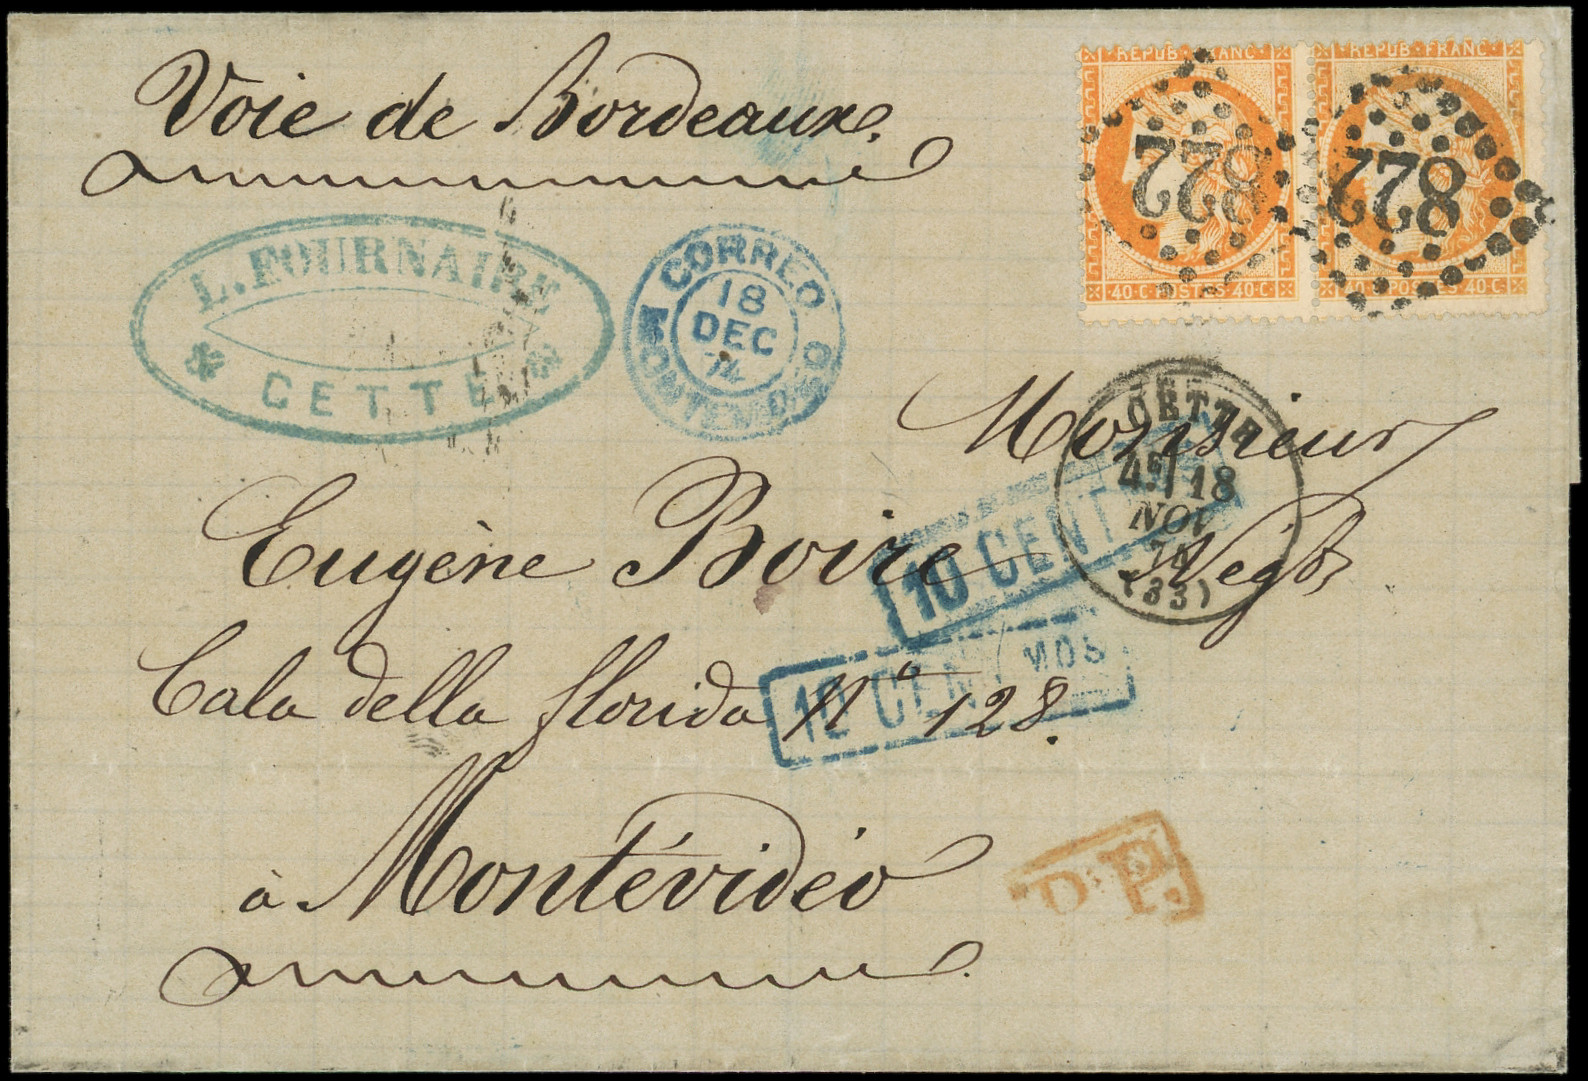 Voie de Bordeaux.
REPUB · FRANC ·
REPUB · FRANC ·
822
822
40·C·POSTES·40·C·
40·C·POSTES·40·C·
L. FOURNAIRE
CETTE
CORREOS
18
DEC
74
MONTEVIDEO
Monsieur
CETTE
4E/ 18
NOV
74
(33)
Eugène Boire Negt
10 CENT
Cala della florida N° 128.
10 CENTMOS
à Montévidéo
P.P.